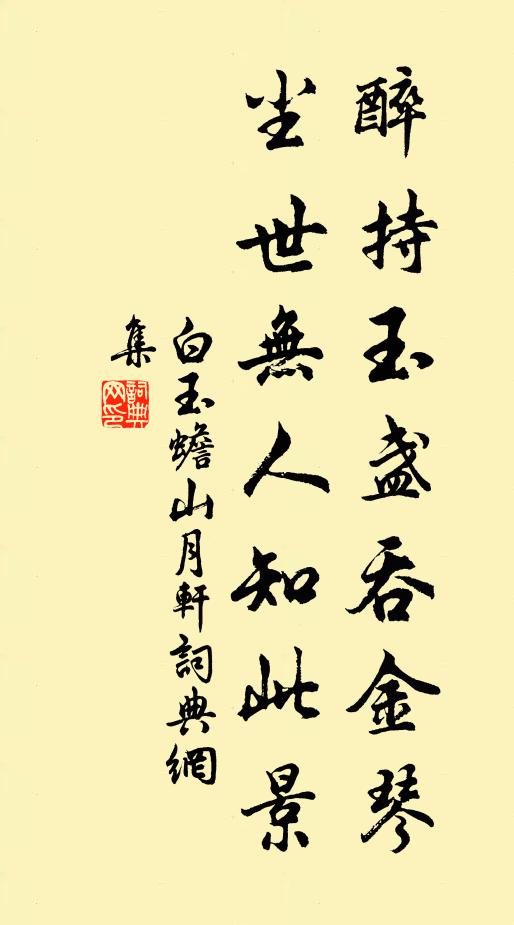 醉持玉盏吞金琴
尘世無人知此景
白玉蟾山月軒詞典網
集
詞典
网印